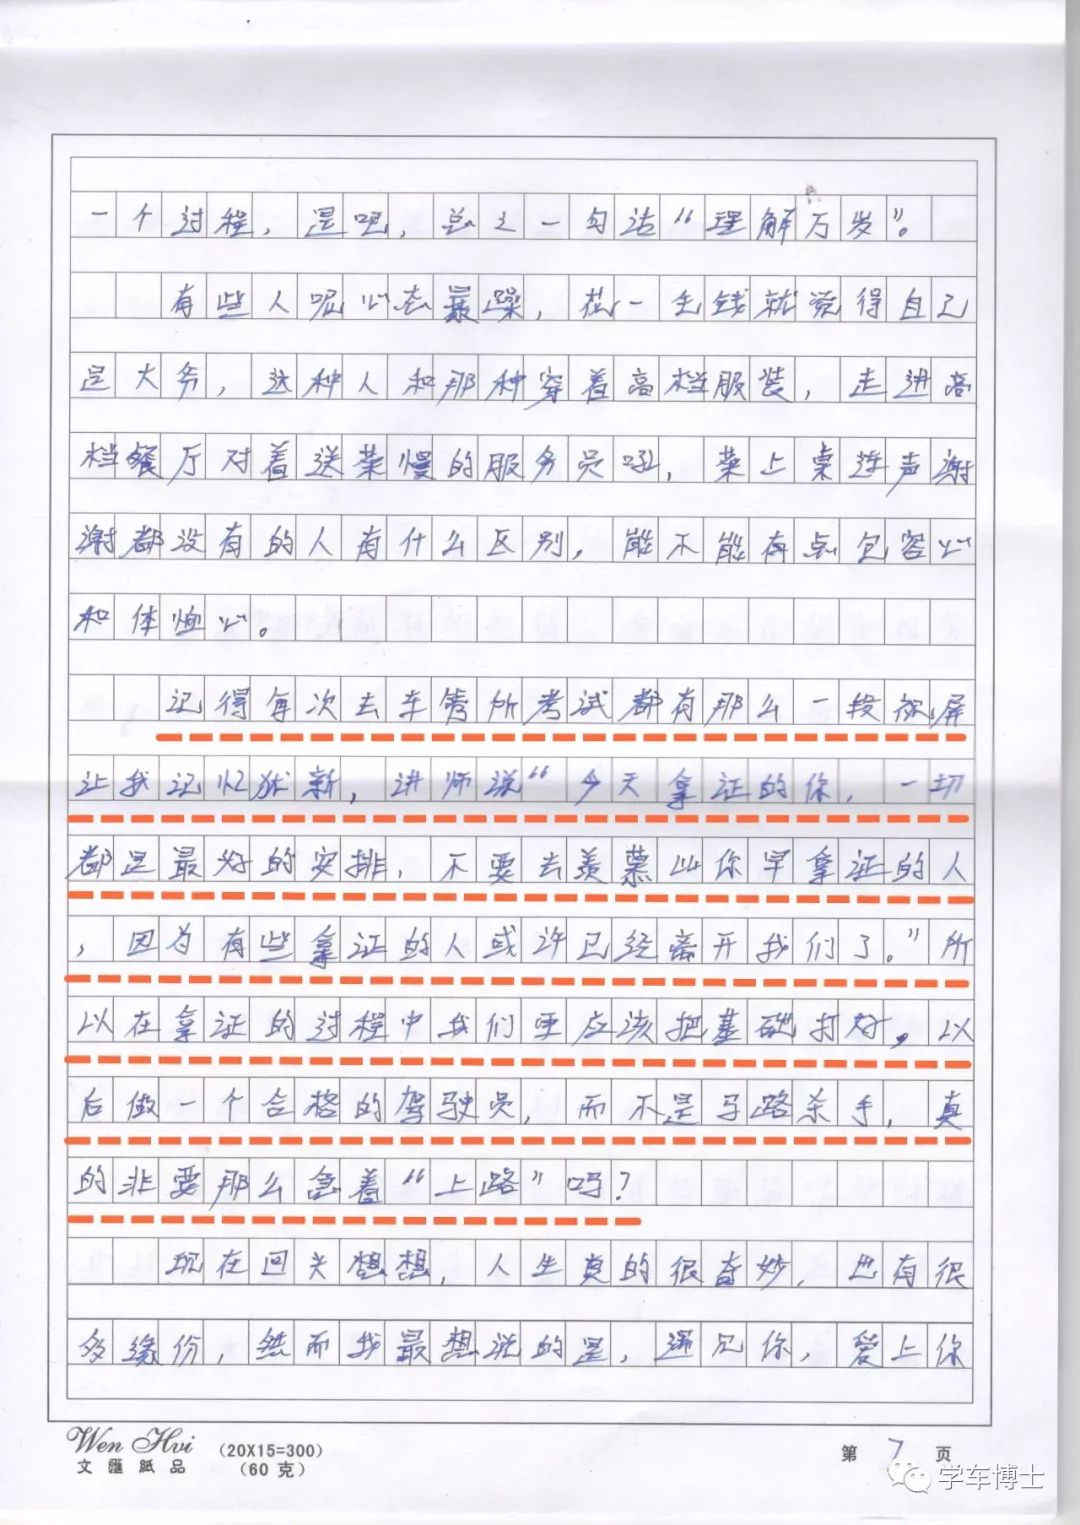 一个过程，是吧，总之一句话“理解万岁”。
有些人呢心态暴躁，花一毛钱就觉得自己
是大爷，这种人和那种穿着高档服装，走进高
档餐厅对着送菜慢的服务员吼，菜上桌连声谢
谢都没有的人有什么区别，能不能有点包容心
和体恤心。
记得每次去车管所考试都有那么一段视屏
让我记忆犹新，讲师说“今天拿证的你，一切
都是最好的安排，不要去羡慕比你早拿证的人
，因为有些拿证的人或许已经离开我们了。”所
以在拿证的过程中我们更应该把基础打好，以
后做一个合格的驾驶员，而不是马路杀手，真
的非要那么急着“上路”吗？
现在回头想想，人生真的很奇妙，也有很
多缘份，然而我最想说的是，遇见你，爱上你
Wen Hui (20X15=300)
文匯紙品 (60克)
第 7 页
学车博士